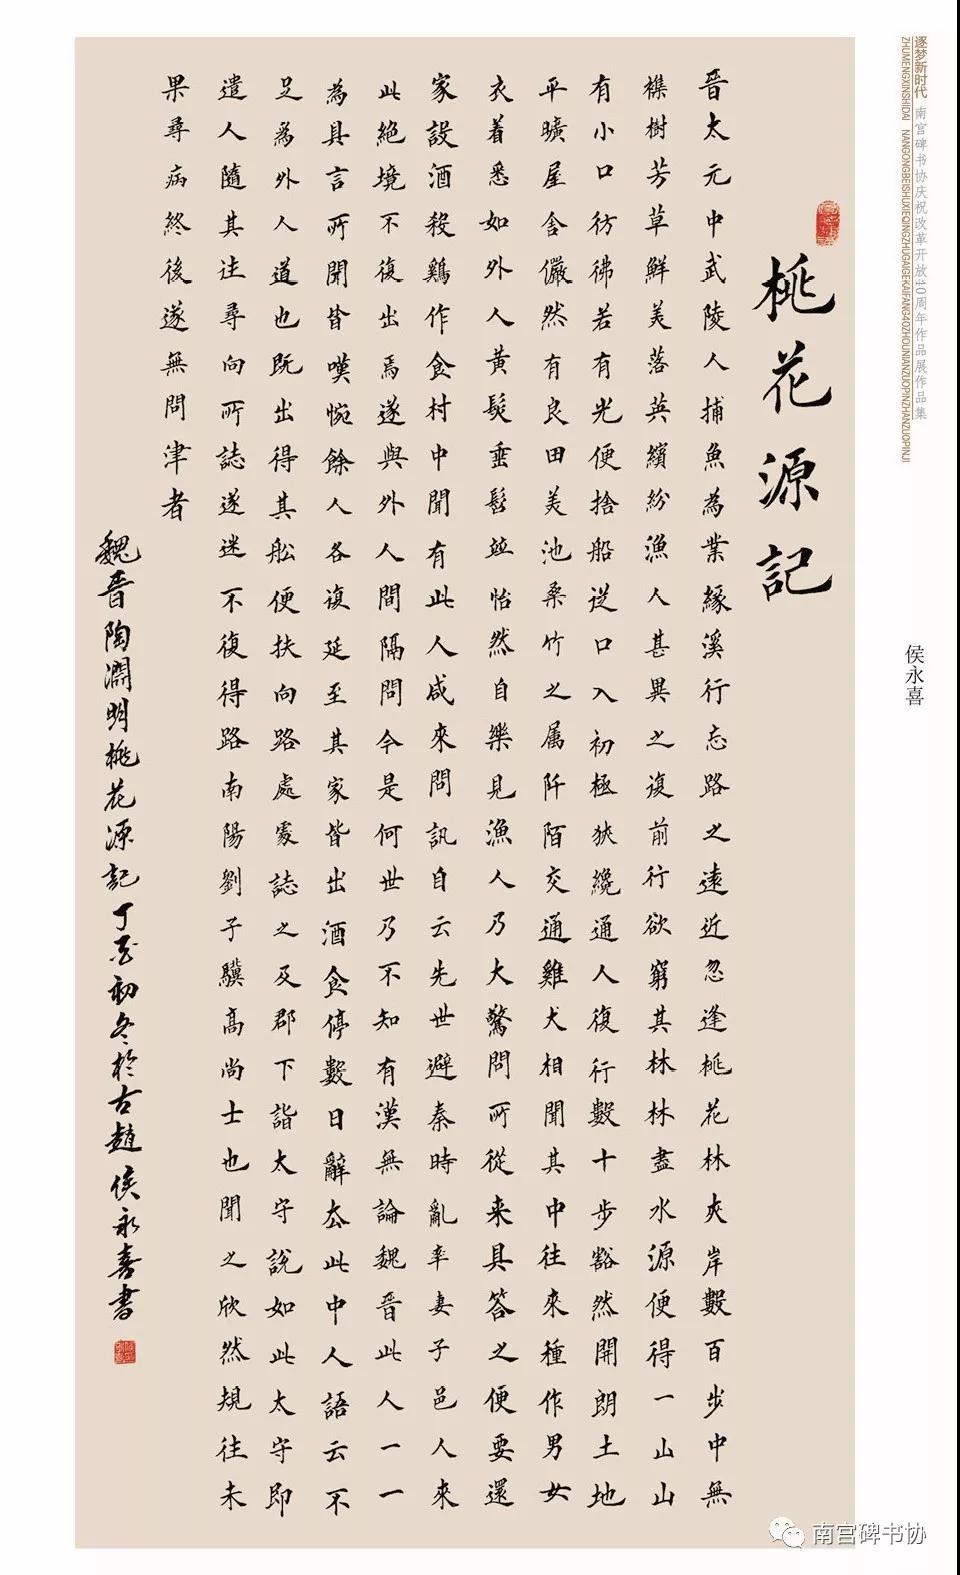 逐梦新时代 南宫碑书协庆祝改革开放40周年作品展作品集
ZHUMENGXINSHIDAI NANGONGBEISHUXIEQINGZHUGAIGEKAIFANG40ZHOUNIANZUOPINZHANZUOPINJI
侯永喜
桃花源記
晉太元中武陵人捕魚為業緣溪行忘路之遠近忽逢桃花林夾岸數百步中無
襍樹芳草鮮美落英繽紛漁人甚異之復前行欲窮其林林盡水源便得一山山
有小口彷彿若有光便捨船從口入初極狹纔通人復行數十步豁然開朗土地
平曠屋舍儼然有良田美池桑竹之属阡陌交通雞犬相聞其中往來種作男女
衣着悉如外人黃髮垂髫並怡然自樂見漁人乃大驚問所從来具答之便要還
家設酒殺鷄作食村中聞有此人咸來問訊自云先世避秦時亂率妻子邑人來
此絕境不復出焉遂與外人間隔問今是何世乃不知有漢無論魏晉此人一一
為具言所聞皆嘆惋餘人各復延至其家皆出酒食停數日辭去此中人語云不
足為外人道也既出得其舩便扶向路處處誌之及郡下詣太守說如此太守即
遣人隨其往尋向所誌遂迷不復得路南陽劉子驥高尚士也聞之欣然規往未
果尋病終後遂無問津者
魏晉陶淵明桃花源記丁酉初冬於古趙侯永喜書
南宫碑书协